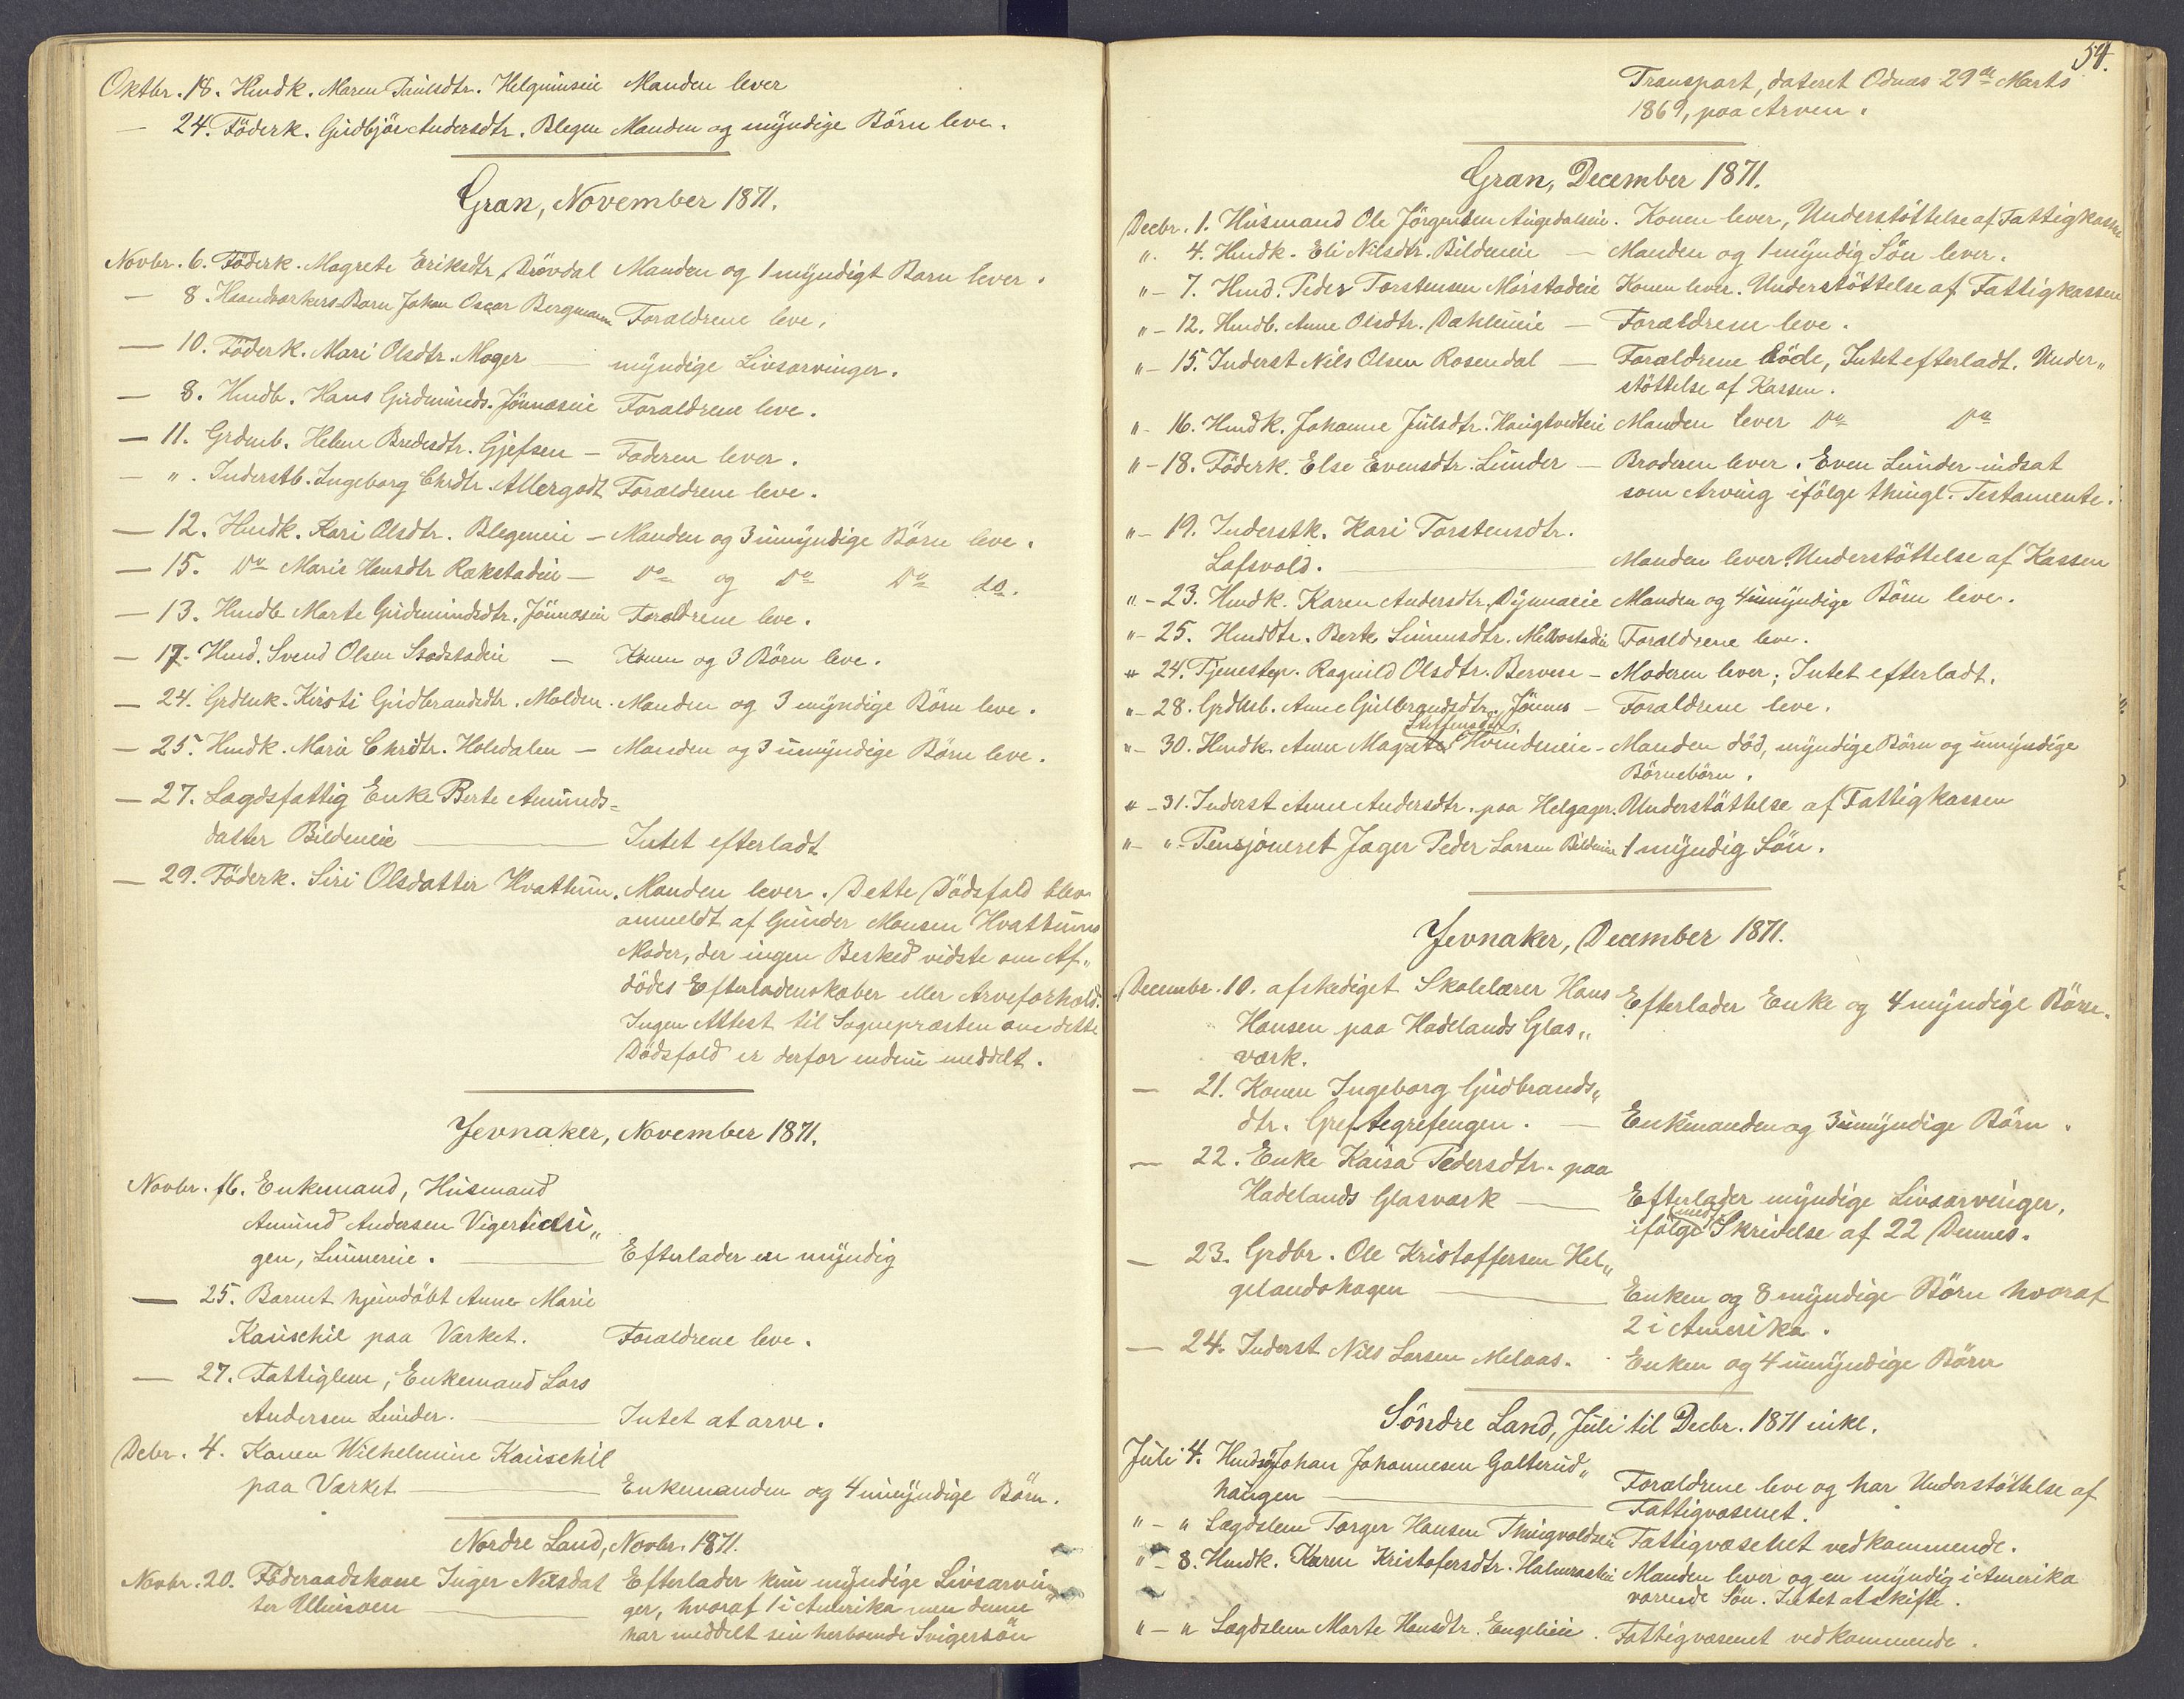 Oktbr. 18. Husmdk. Maren Paulsdtr. Helgumseie Manden lever
— 24. Föderk. Gudbjör Andersdtr. Blegen Manden og myndige Börn leve.
Gran, November 1871.
Novbr. 6. Föderk. Magrete Eriksdtr. Drövdal Manden og 1 myndigt Barn lever.
— 8. Haandværkers Barn Johan Oscar Bergmann Forældrene leve.
— 10. Föderk. Mari Olsdtr. Moger — myndige Livsarvinger.
— 8. Hmdb. Hans Gudmunds. Jönnæseie Forældrene leve.
— 11. Grdmb. Helene Bredesdtr. Gjefsen — Faderen lever.
— ". Inderstb. Ingeborg Chrdtr. Allergodt Forældrene leve.
— 12. Hmdk. Kari Olsdtr. Blegeneie — Manden og 3 umyndige Börn leve.
— 15. Do Marie Hansdtr Rækstadeie — Do og Do Do do.
— 13. Hmdb Marte Gudmundsdtr. Jönnæseie Forældrene leve.
— 17. Hmd. Svend Olsen Stadstadeie — Konen og 3 Börn leve.
— 24. Grdmk. Kirsti Gudbrandsdtr. Molden. Manden og 3 myndige Börn leve.
— 25. Hmdk. Marie Chrdtr. Holedalen — Manden og 3 umyndige Börn leve.
— 27. Lægdsfattig Enke Berte Amunds=
datter Bildeneie — Intet efterladt
— 29. Föderk. Siri Olsdatter Hvattum. Manden lever. Dette Dödsfald blev
anmeldt af Gunder Monsen Hvattums
Moder, der ingen Besked vidste om Af„
dödes Efterladenskaber eller Arveforhold.
Ingen Attest til Sognepræsten om dette
Dödsfald er derfor endnu meddelt.
Jevnaker, November 1871.
Novbr. 16. Enkemand, Husmand
Amund Andersen
gen, Lunnereie. — Efterlader en myndig
— 25. Barnet hjemdöbt Anne Marie
Kauschil paa Værket. Forældrene leve.
— 27. Fattiglem, Enkemand Lars
Andersen Lunder. — Intet at arve.
Debr. 4. Konen Wilhelmine Kauschil
paa Værket — Enkemanden og 4 umyndige Börn.
Nordre Land, Novbr. 1871.
Novbr. 20. Föderaadskone Inger Nilsdat Efterlader kun myndige Livsarvin
ter Ulluisoen — ger, hvoraf 1 i Amerika men denne
har meddelt sin herboende Svigersön
54.
Transport, dateret Odnæs 29de Marts
1869, paa Arven.
Gran, December 1871.
Decbr. 1. Husmand Ole Jörgensen Augedalseie. Konen lever, Understöttelse af Fattigkassen
". 4. Hmdk. Eli Nilsdtr. Bildeneie — Manden og 1 myndig Sön lever.
" — 7. Hmd. Peder Torstensen Morstadeie Konen lever. Understöttelse af Fattigkassen
" — 12. Hmdb. Anne Olsdtr. Dahleneie — Forældrene leve.
" — 15. Inderst Nils Olsen Rosendal — Forældrene döde, Intet efterladt. Under„
stöttelse af Kassen.
" — 16. Hmdk. Johanne Julsdtr. Haugtvedteie Manden lever Do Do
" — 18. Föderk. Else Evensdtr. Lunder — Broderen lever. Even Lunder indsat
som Arving ifölge thingl. Testamente.
" — 19. Inderstk. Kari Torstensdtr.
Lafsvold. — Manden lever. Understöttelse af Kassen
" — 23. Hmdk. Karen Andersdtr. Dynnaeie Manden og 4 umyndige Börn leve.
" — 25. Hmddtr. Berte Simensdtr. Forældrene leve.
" 24. Tjenestep. Ragnild Olsdtr. Berven — Moderen lever; Intet efterladt.
" — 28. Grdmb. Anne Gulbrandsdtr. Jönnes — Forældrene leve.
Steffensdtr
" — 30. Hmdk. Anne Magrete Hvindeneie — Manden död, myndige Börn og umyndige
Börnebörn.
" — 31. Inderst Anne Andersdtr. paa Helgagr. Understöttelse af Fattigkassen
" — " — Pensjoneret Jæger Peder Larsen Bildeneie 1 myndig Sön.
Jevnaker, December 1871.
Decembr. 10. afskediget Skolelærer Hans Efterlader Enke og 4 myndige Börn.
Hansen paa Hadelands Glas„
værk.
— 21. Konen Ingeborg Gudbrands„
dtr. Greftegrefengen. — Enkemanden og 3 umyndige Börn.
— 22. Enke Kaisa Pedersdtr. paa
Hadelands Glasværk — Efterlader myndige Livsarvinger,
ifölge meds Skrivelse af 22 Dennes.
— 23. Grdbr. Ole Kristoffersen Hel„
gelandshagen — Enken og 8 myndige Börn hvoraf
2 i Amerika.
— 24. Inderst Nils Larsen Melaas. Enken og 4 umyndige Börn
Söndre Land, Juli til Decbr. 1871 inkl.
Juli 4. Johan Johannesen Galterud„
haugen — Forældrene leve og har Understöttelse af
Fattigvæsenet.
" — " Lægdslem Torger Hansen Thingvoldseie Fattigvæsenet vedkommende.
" — 8. Hmdk. Karen Kristofersdtr. Manden lever og en myndig i Amerika
værende Sön. Intet at skifte.
" — " Lægdslem Marte Hansdtr. Engelieie. Fattigvæsenet vedkommende.